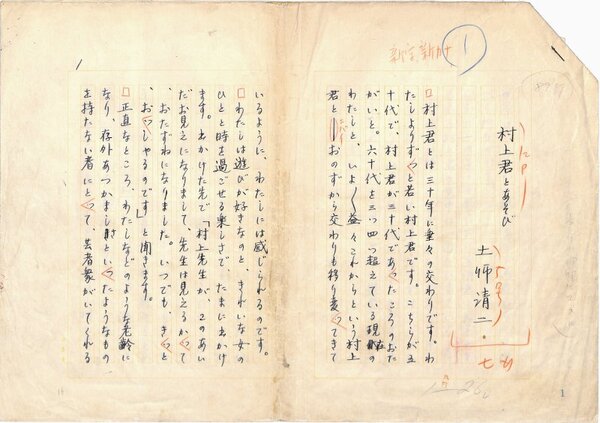 新字新かナ
1
村上君とあそび
土師清二
村上君とは三十年に垂々の交わりです。わ
たしよりずっと若い村上君です。こちらが五
十代で、村上君が三十代であったころのおた
がいと。六十代を三つ四つ超えている現在の
わたしと、いよ〳〵益々これからという村上
君とおのずから交わりも移り変ってきて
1
いるように、わたしには感じられるのです。
わたしは遊びが好きなのと、きれいな女の
ひとと時を過ごせる楽しさで、たまに出かけ
ます。出かけた先で「村上先生が、このあい
だお見えになりまして、先生は見えるかって
おたずねになりました。いつでも、きっと
、おっしゃるのです」と聞きます。
正直なところ、わたしなどのような老齢に
なり、存外あつかましいといったようなもの
を持たない者にとって、芸者衆がいてくれる